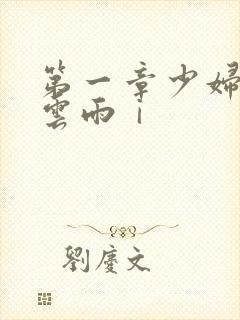 第一章少婦
雲雨｜
劉慶文